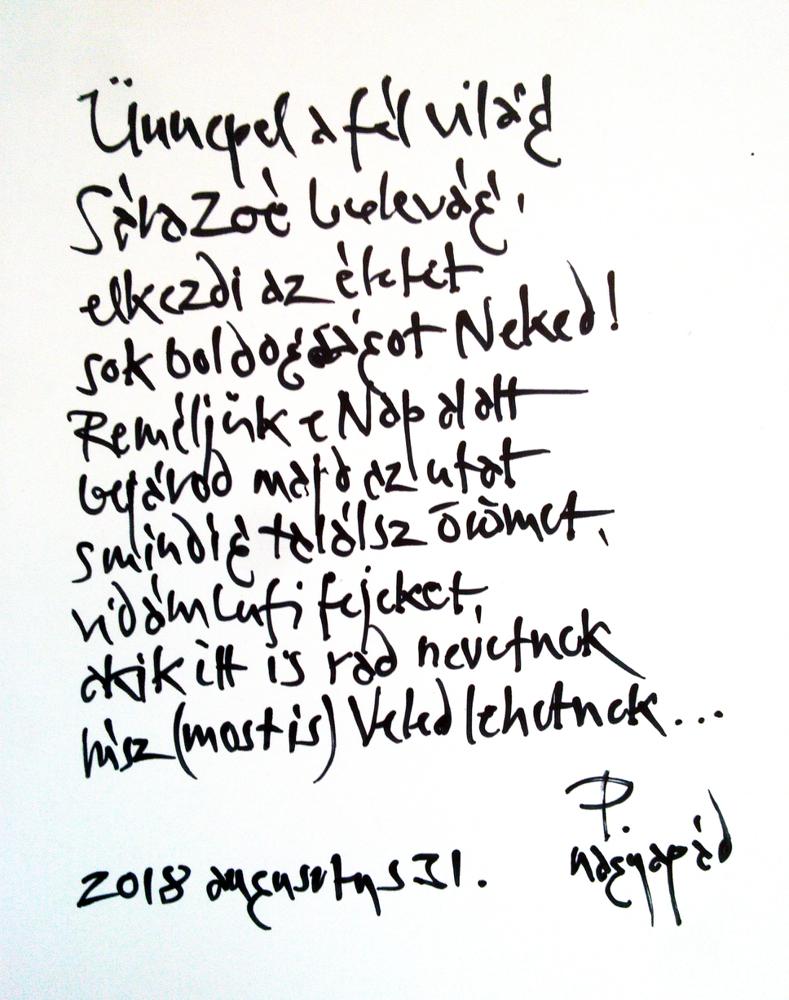 Ünnepel a fél világ
Sára Zoé belevág,
elkezdi az életét
sok boldogságot Neked!
Reméljük e Nap alatt
bejárod majd az utat
s mindig találsz örömet,
vidám lufi fejeket,
akik itt is rád nevetnek
hisz (most is) Veled lehetnek...
P.
nagyapád
2018 augusztus 31.